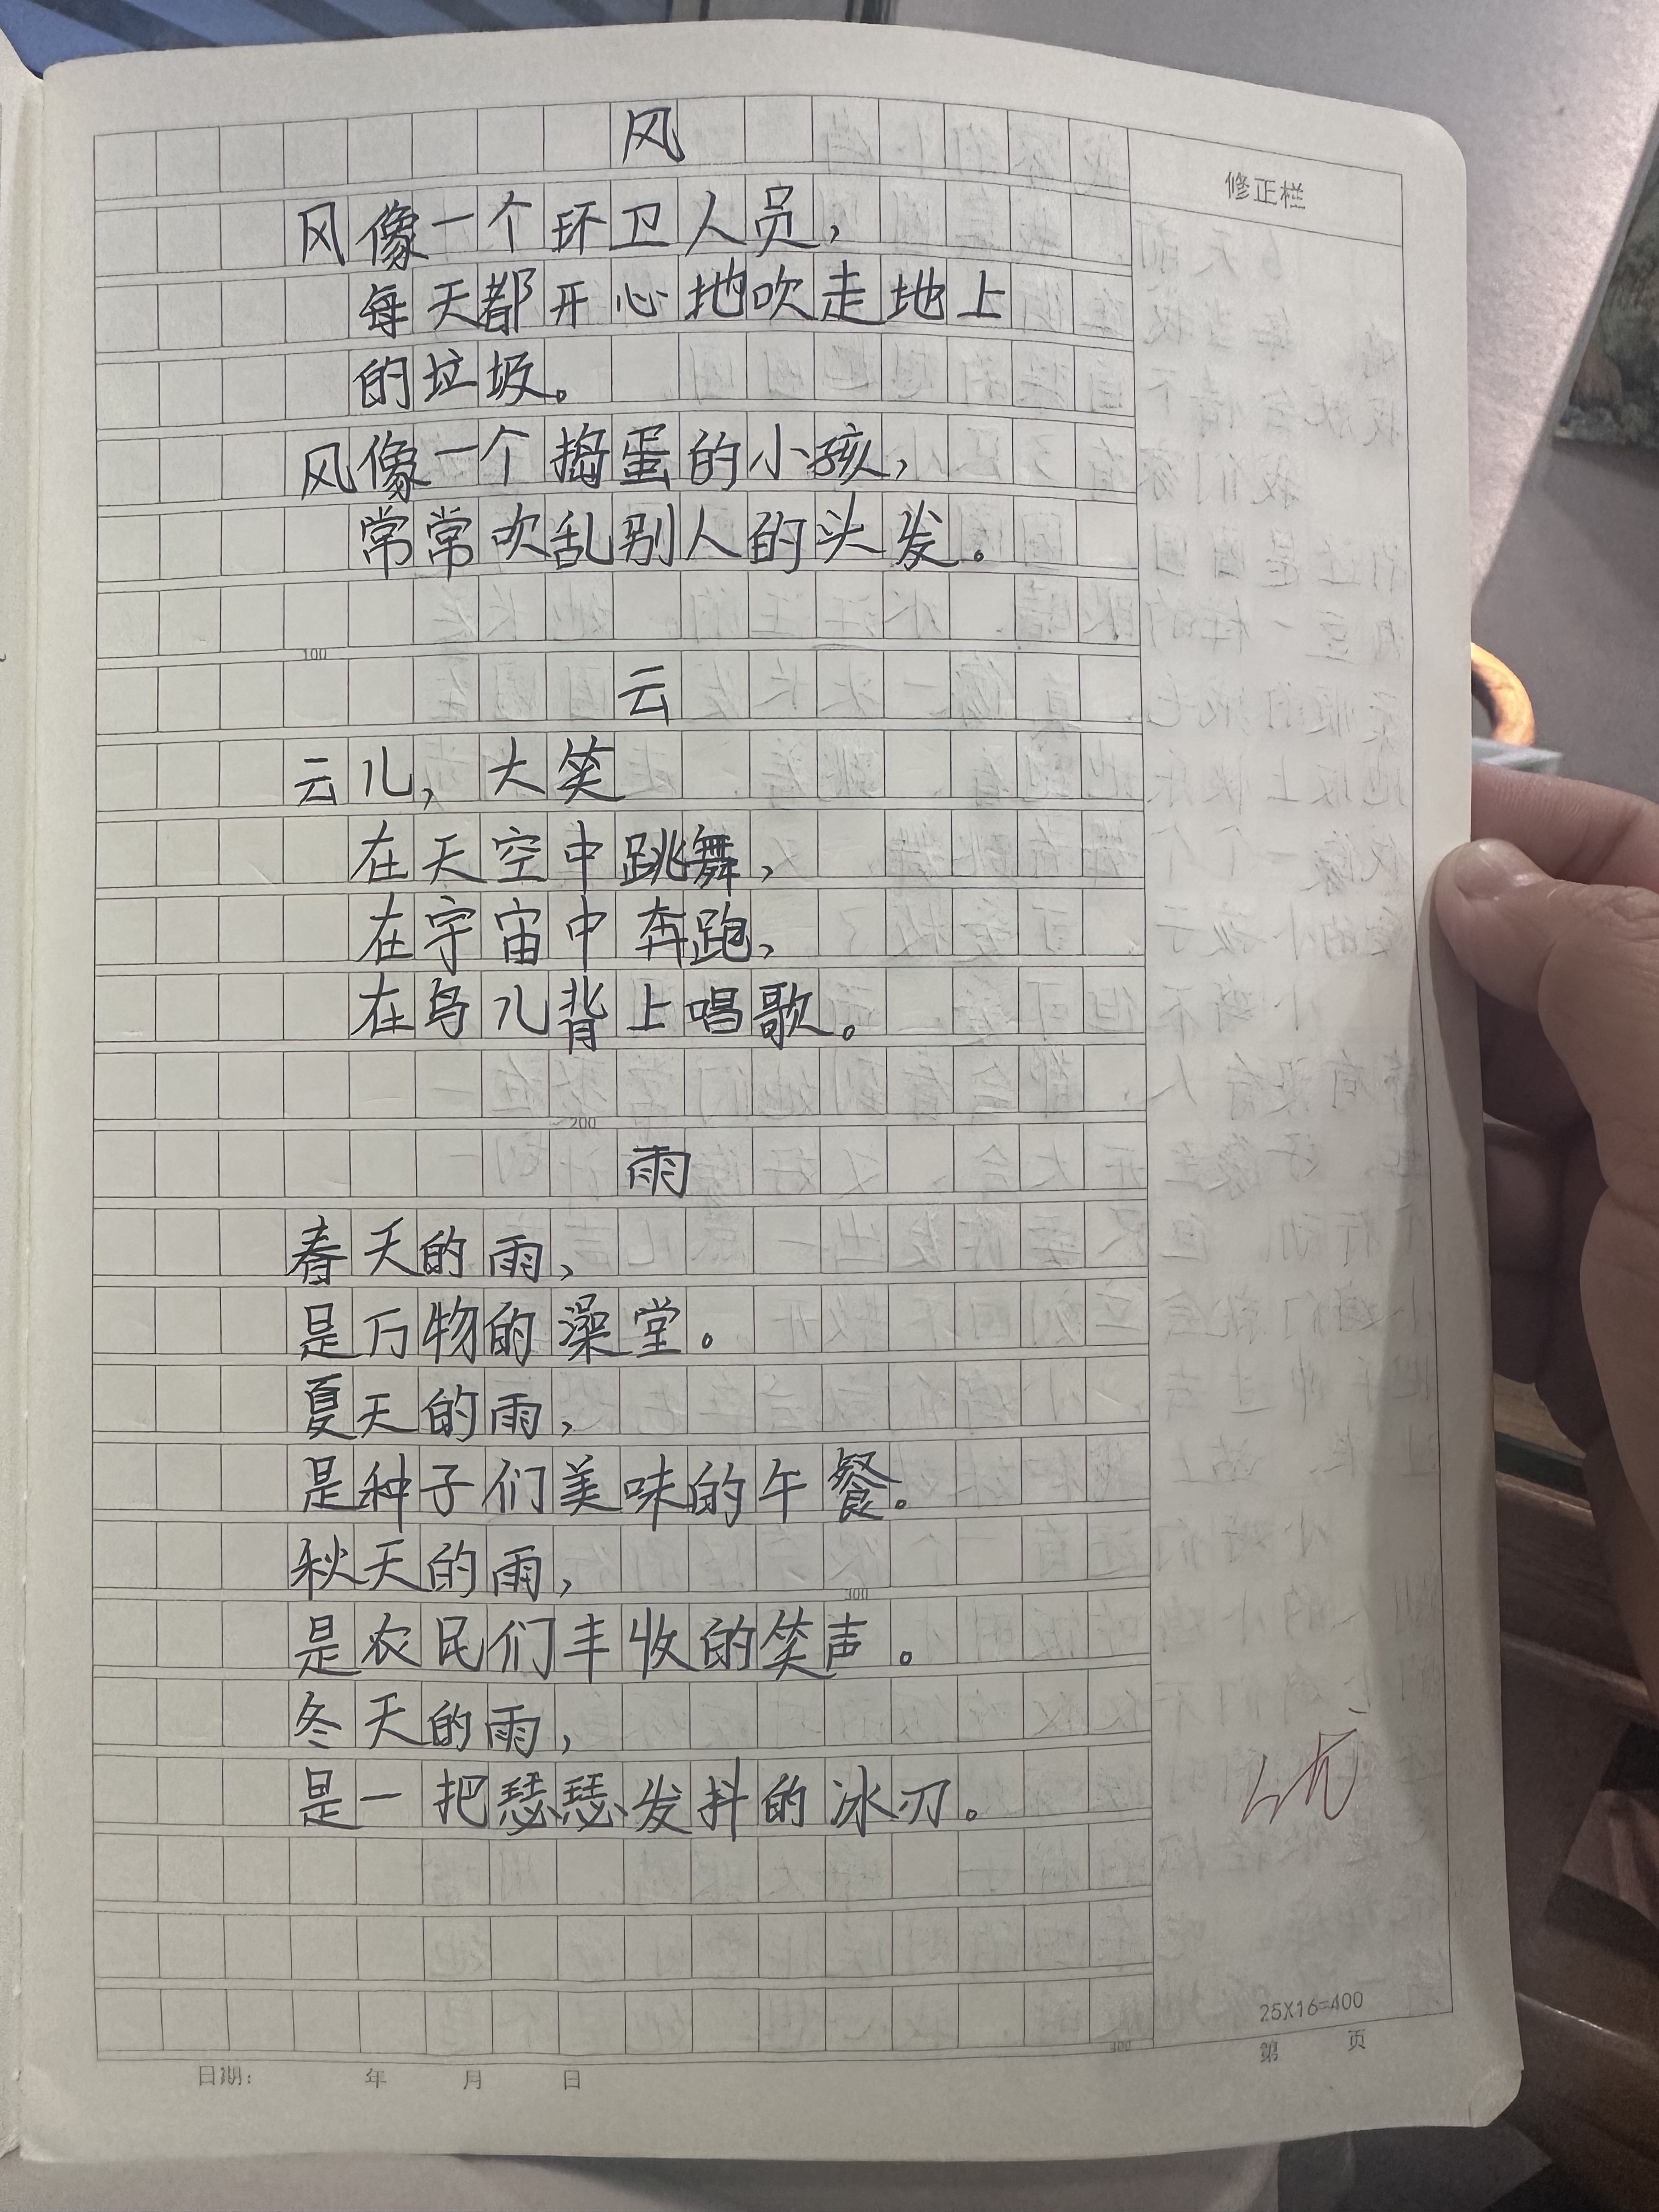 风
修正栏
风像一个环卫人员，
每天都开心地吹走地上
的垃圾。
风像一个捣蛋的小孩，
常常吹乱别人的头发。
100
云
云儿，大笑
在天空中跳舞，
在宇宙中奔跑，
在鸟儿背上唱歌。
200
雨
春天的雨，
是万物的澡堂。
夏天的雨，
是种子们美味的午餐。
秋天的雨，
300
是农民们丰收的笑声。
冬天的雨，
是一把瑟瑟发抖的冰刃。
优
25X16=400
400
第 页
日期: 年 月 日